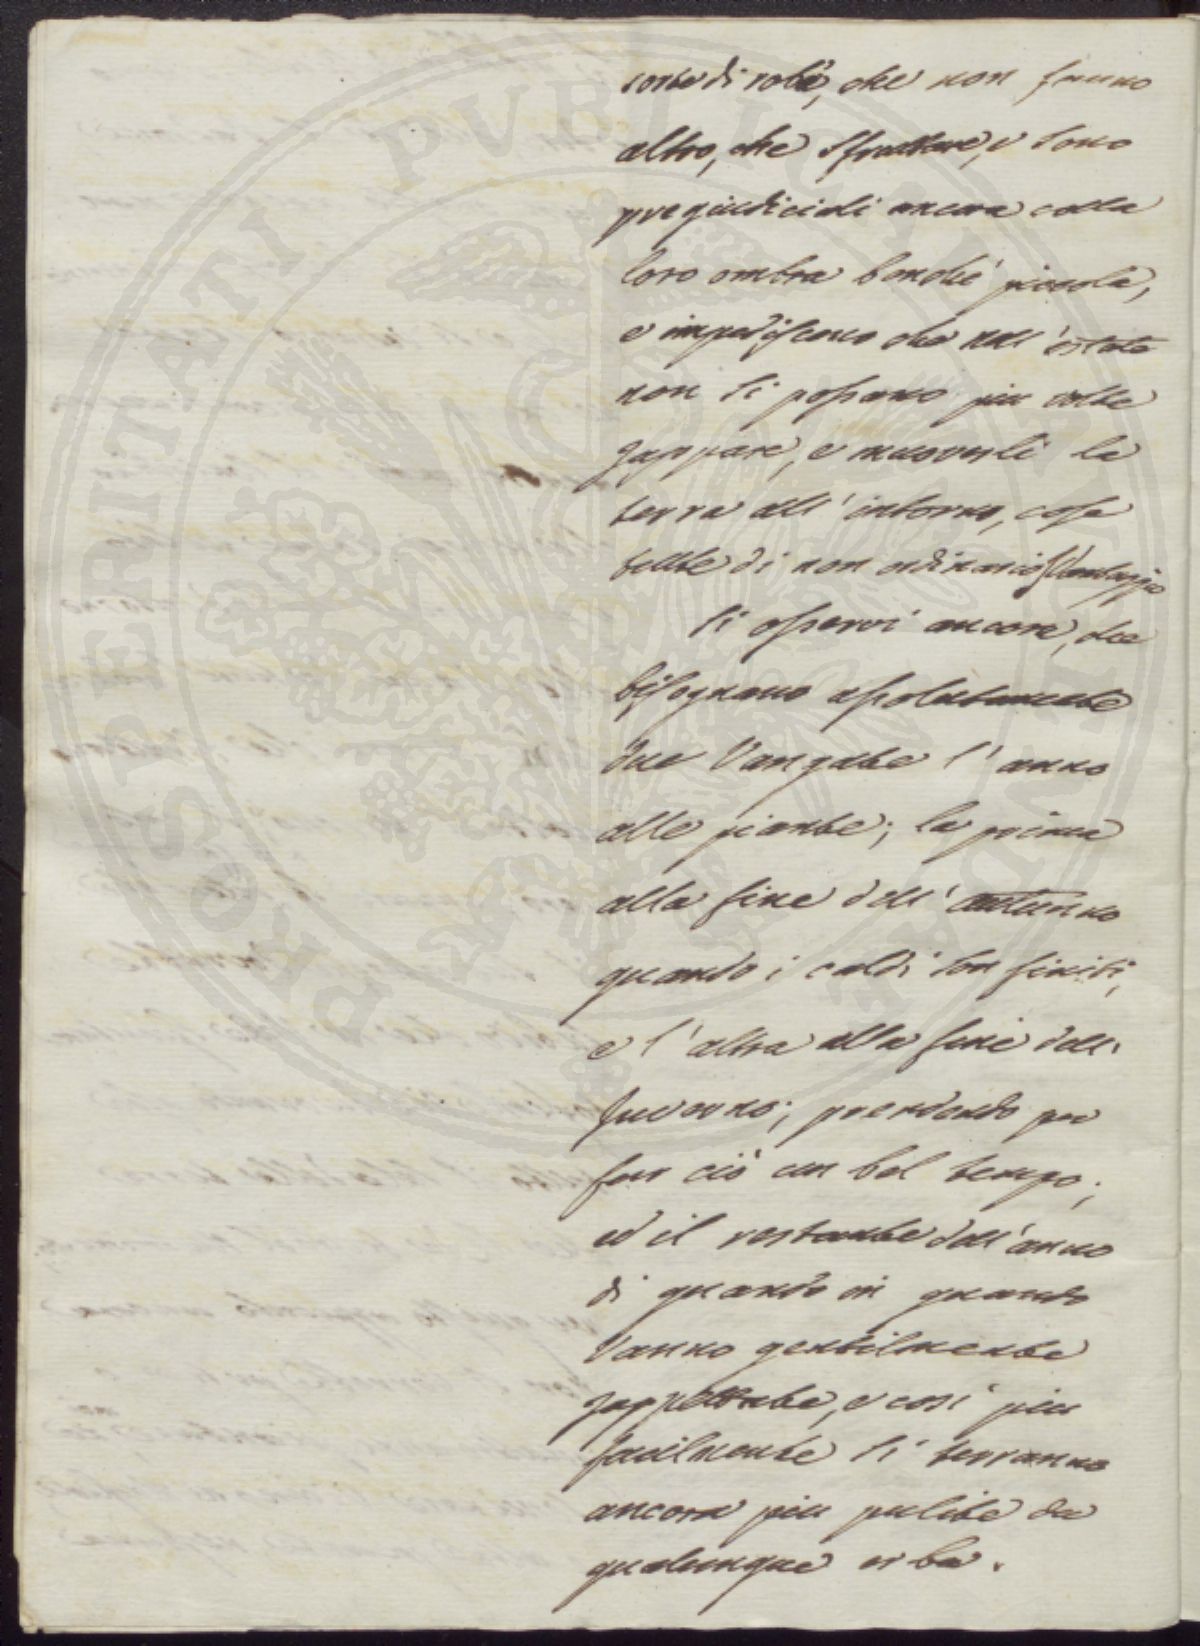 sorte di robe, che non fanno
altro, che sfruttare, e sono
pregiudiciali ancora colla
loro ombra bonché piccola,
e impediscono che nell'estate
non si possano più volte
zappare, e muoverli la
terra all'intorno, cose
tutte di non ordinario Vantaggio
Si osservi ancora, che
bisognano assolutamente
due Vangate l'anno
alle piante; la prima
alla fine dell'autunno
quando i caldi son finiti,
e l'altra alla fine dell'
Inverno; prendendo per
far ciò un bel tempo;
ed il restante dell'anno
di quando in quando
Vanno gentilmente
zappettate, e così più
facilmente si terranno
ancora più pulite da
qualunque erba.
PROSPERITATI PUBLICAE AUGENDAE